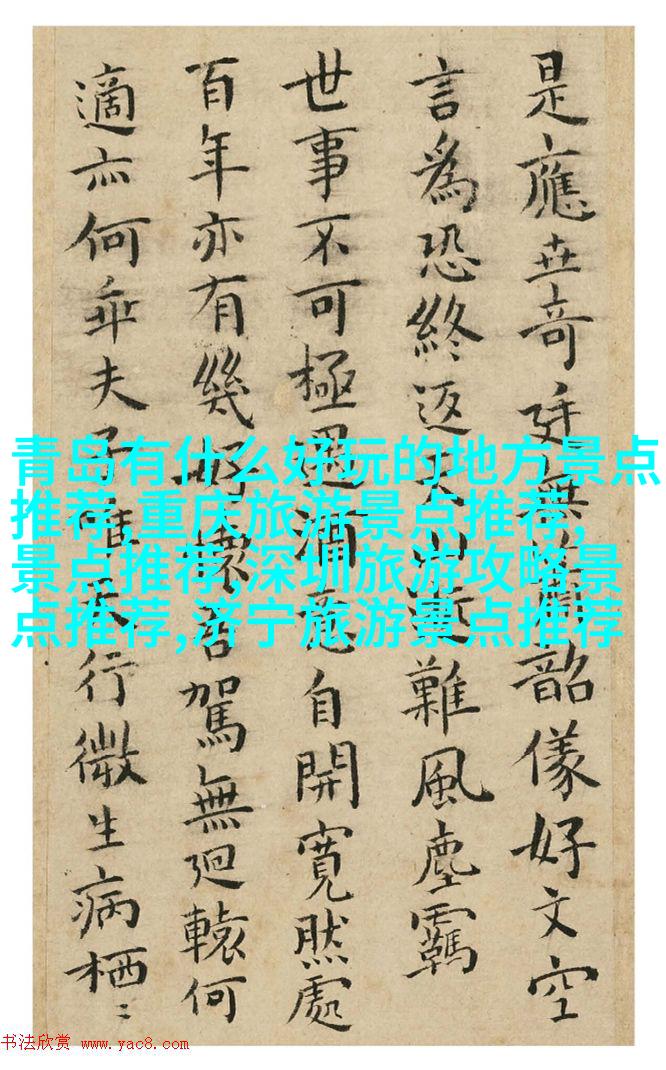 是應世奇廷無韶儀好文空
言爲恐終返山難風塵羈
世事不可極遇酒自開寬然處
百年亦有幾好懷君駕無迴轅何
適亦何乖夫子行微生病栖〻
青岛有什么好玩的地方景点
推荐,重庆旅游景点推荐,
景点推荐,深圳旅游攻略景
点推荐,济宁旅游景点推荐
书法欣赏 www.yac8.com